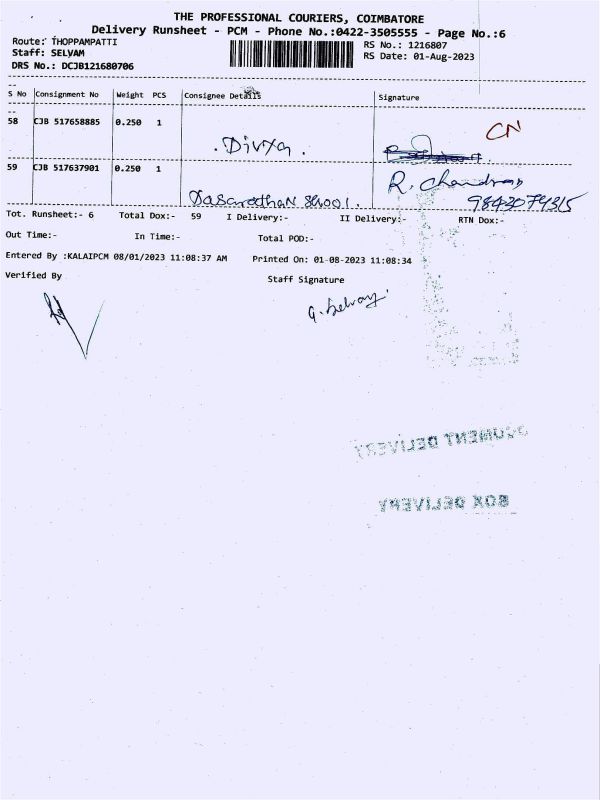 THE PROFESSIONAL COURIERS, COIMBATORE
Delivery Runsheet - PCM - Phone No.:0422-3505555 - Page No.:6
Route: THOPPAMPATTI
Staff: SELVAM
DRS No.: DCJB121680706
RS No.: 1216807
RS Date: 01-Aug-2023
S No Consignment No Weight PCS Consignee Details Signature
58 CJB 517658885 0.250 1 Divya. CN
59 CJB 517637901 0.250 1 Dasarathan School. R. Chandran
9842074315
Tot. Runsheet:- 6 Total Dox:- 59 I Delivery:- II Delivery:- RTN Dox:-
Out Time:- In Time:- Total POD:-
Entered By :KALAIPCM 08/01/2023 11:08:37 AM Printed On: 01-08-2023 11:08:34
Verified By Staff Signature
G. Selvam.
DOCUMENT DELIVERY
BOX DELIVERY